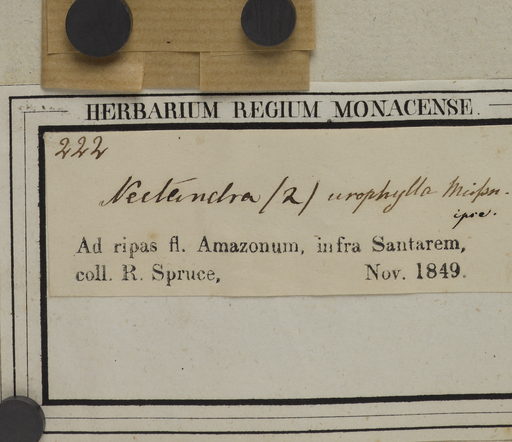 HERBARIUM REGIUM MONACENSE.
222
Nectandra (2) urophylla Meissn.
ipse.
Ad ripas fl. Amazonum, infra Santarem,
coll. R. Spruce, Nov. 1849.